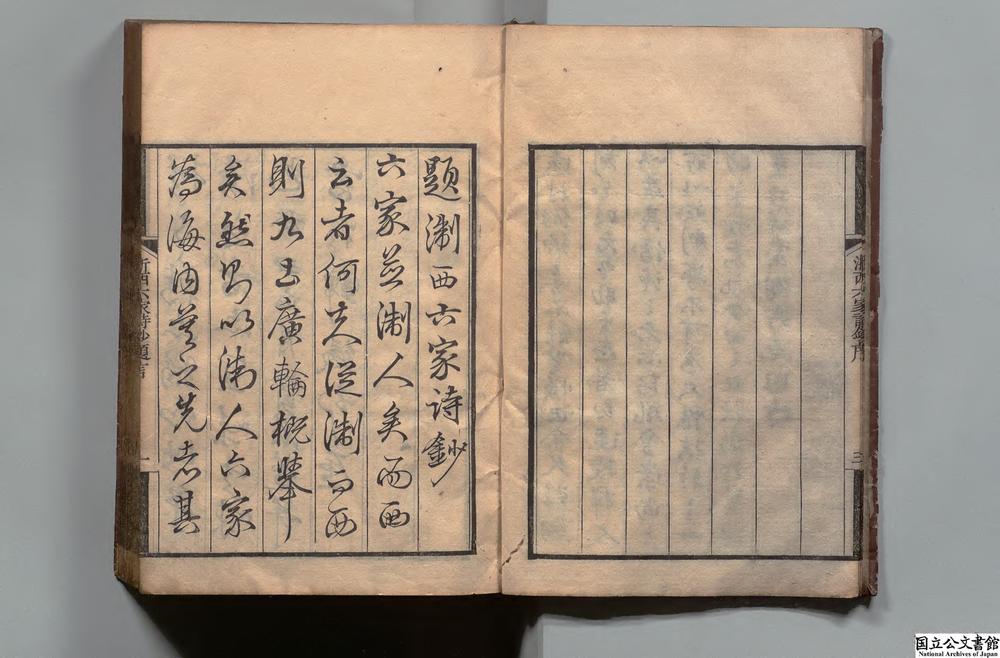 浙西六家詩鈔序
三
題淛西六家詩鈔
六家並淛人矣而西
云者何從淛而西
則九土廣輪概舉
矣然則以淛人六家
為海内之先者其
浙西六家詩鈔題言
一
国立公文書館
National Archives of Japan